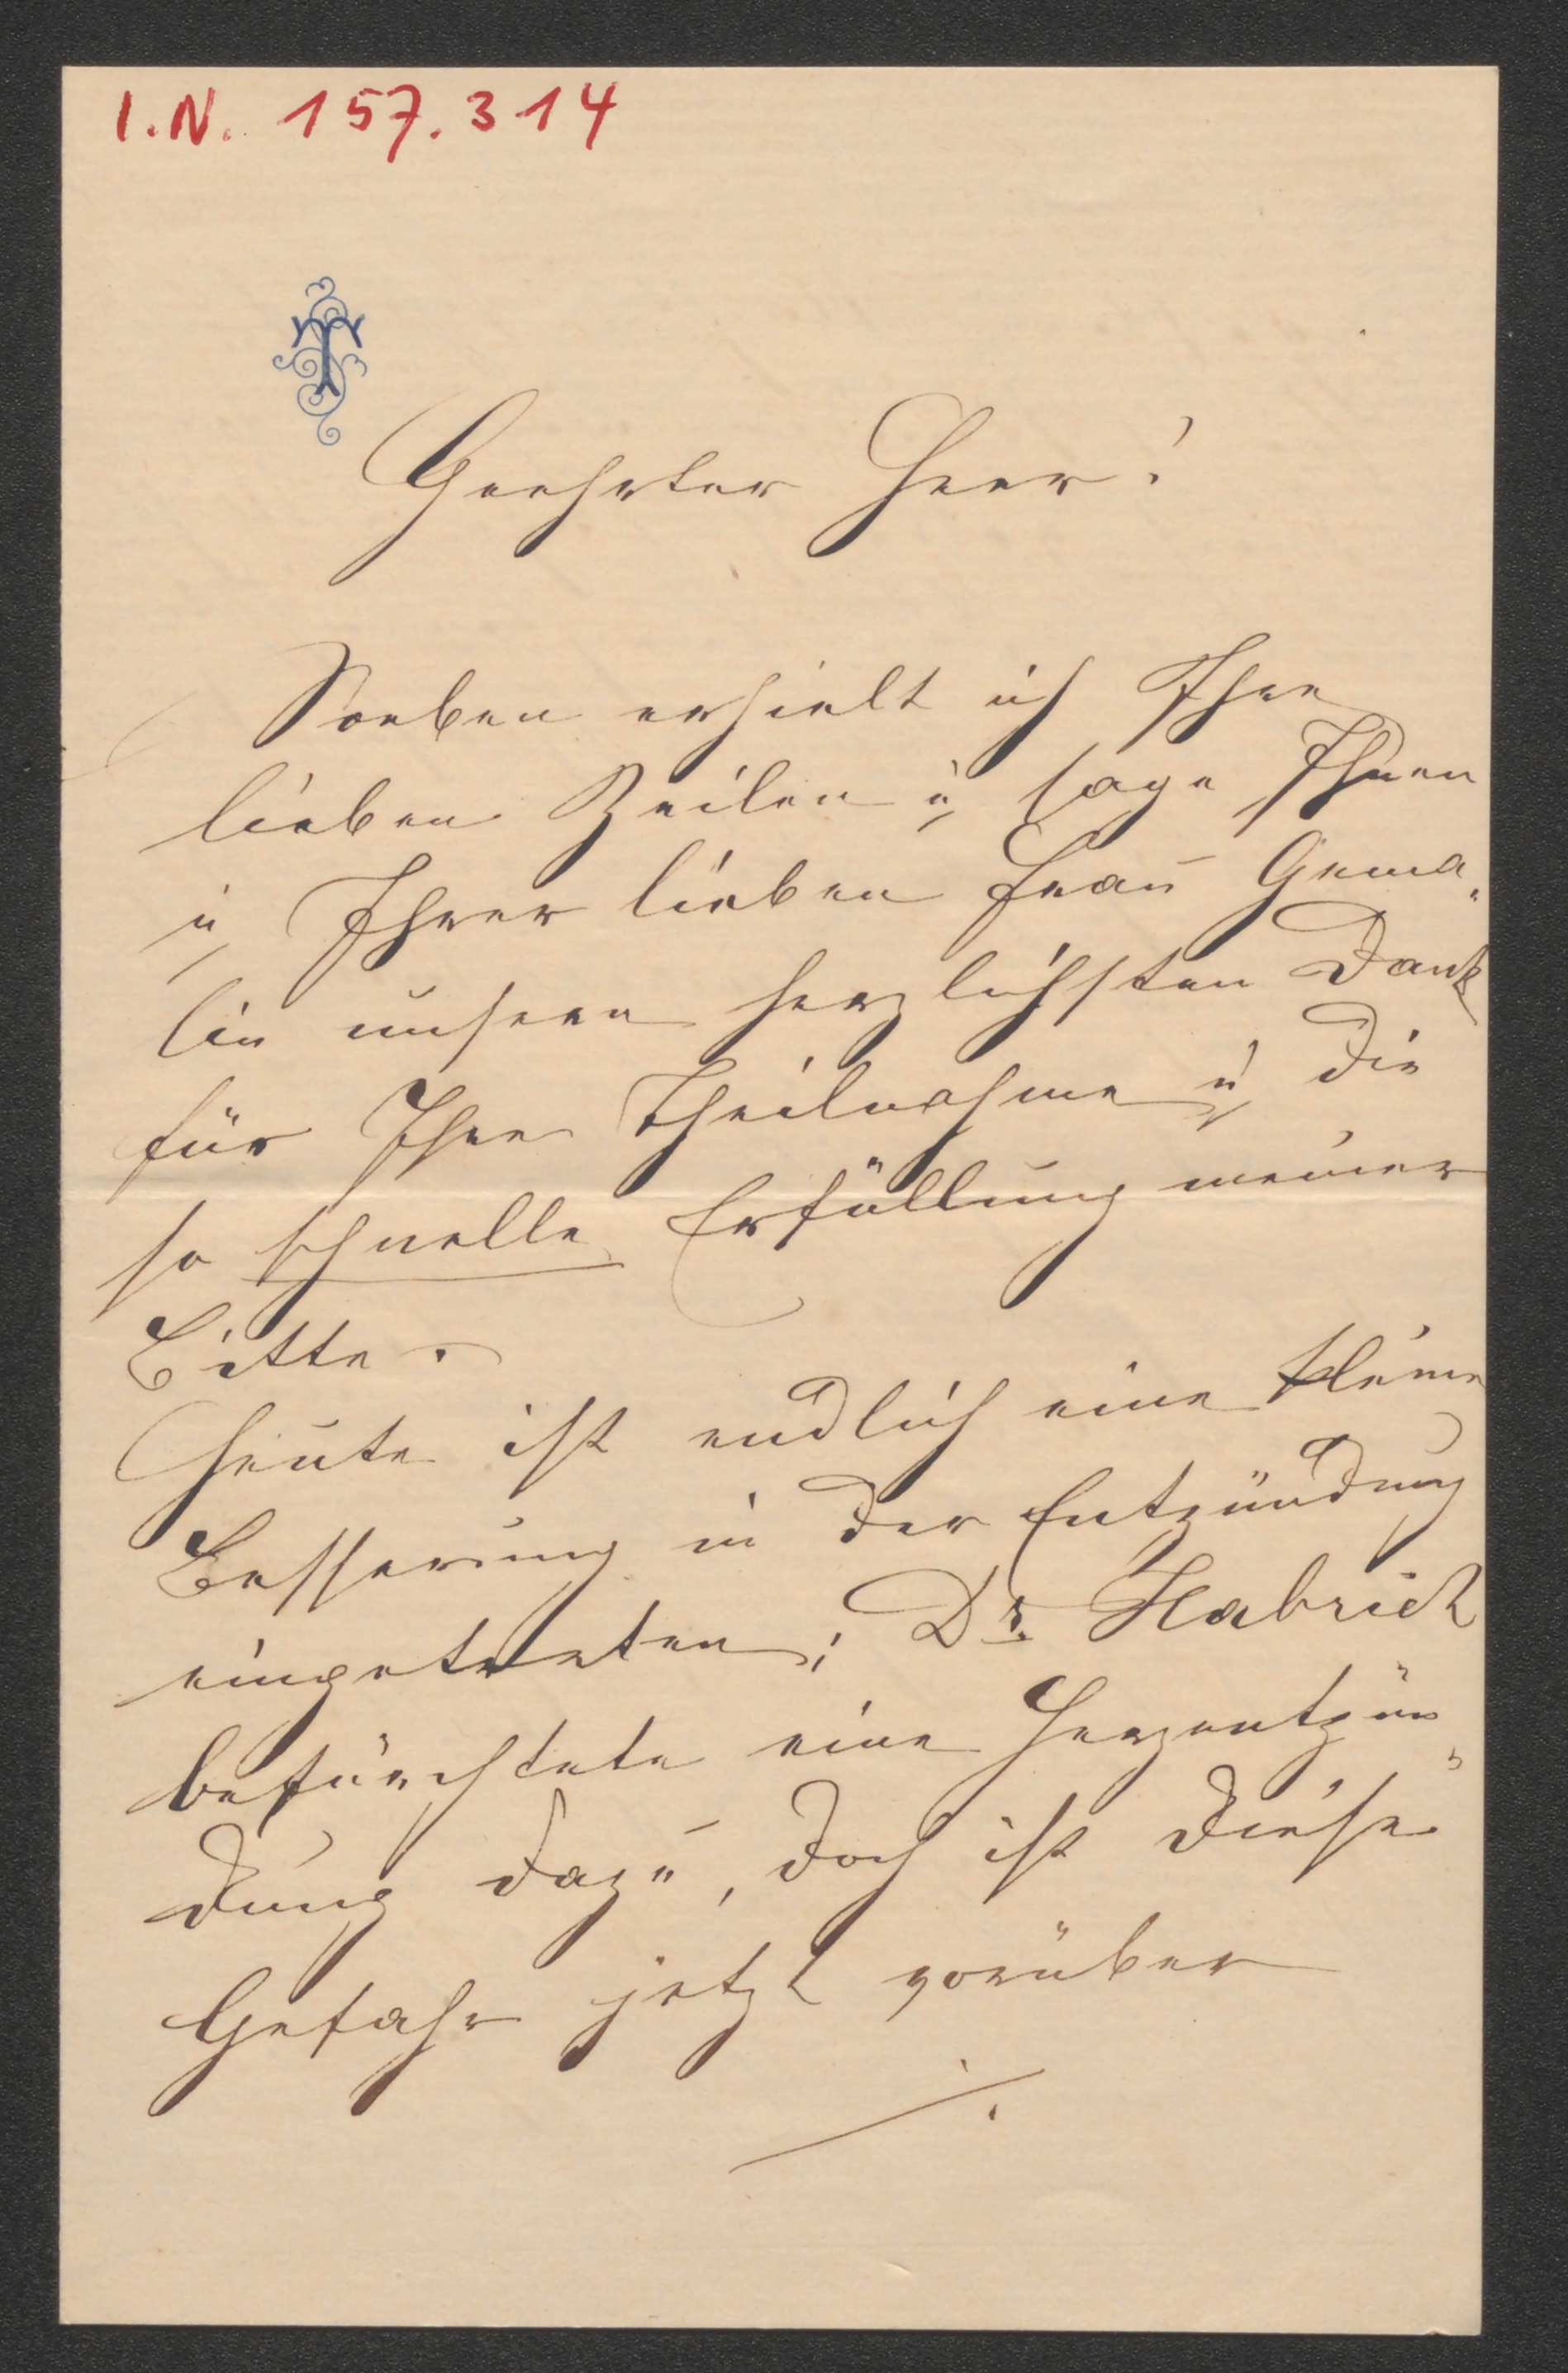 I.N. 157.314
T
Geehrter Herr!
Soeben erhielt ich Ihre
lieben Zeilen u sage Ihnen
u Ihrer lieben Frau Gema„
lin unseren herzlichsten Dank
für Ihre Theilnahme u die
so schnelle Erfüllung meiner
Bitte.
Heute ist endlich eine kleine
Besserung in der Entzündung
eingetreten; Dr. Habrich
befürchtete eine Herzentzün„
dung dazu, doch ist diese
Gefahr jetzt vorüber
./.